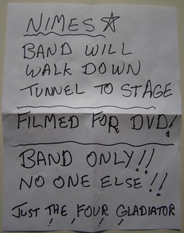 NIMES ☆
BAND WILL
WALK DOWN
TUNNEL TO STAGE
FILMED FOR DVD!
BAND ONLY!!
NO ONE ELSE!!
JUST THE FOUR GLADIATOR